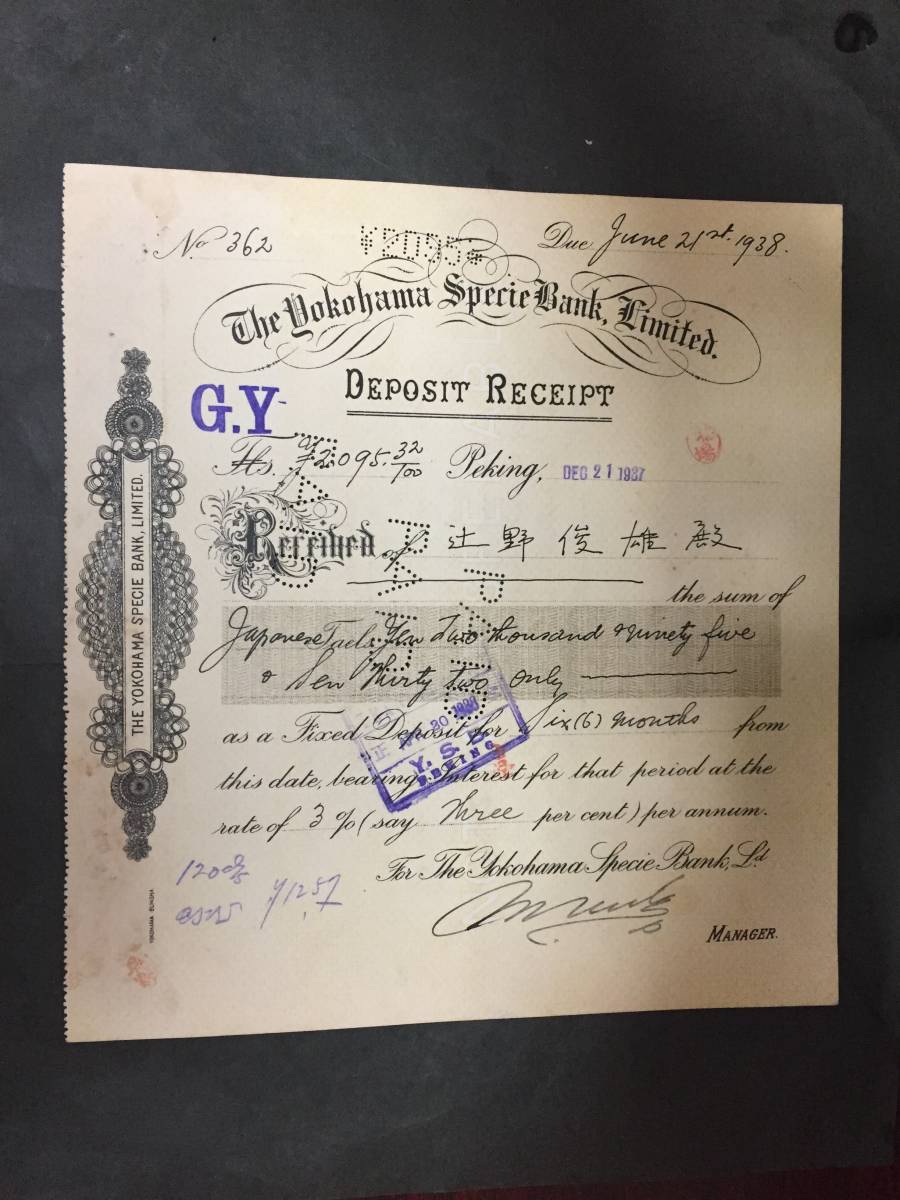 No 362 ¥2095 Due June 21st. 1938.
The Yokohama Specie Bank, Limited.
DEPOSIT RECEIPT
G.Y
Tls. ¥2095.32/100 Peking, DEC 21 1937
Received of 辻野俊雄殿
the sum of
Japanese Taels Yen Two thousand & ninety five
& Sen Thirty two only
as a Fixed Deposit for Six (6) months from
this date, bearing interest for that period at the
rate of 3 % (say Three per cent) per annum.
For The Yokohama Specie Bank, Ld
MANAGER.
THE YOKOHAMA SPECIE BANK, LIMITED.
YOKOHAMA BUNSHA
Y.S.B.
PEKING